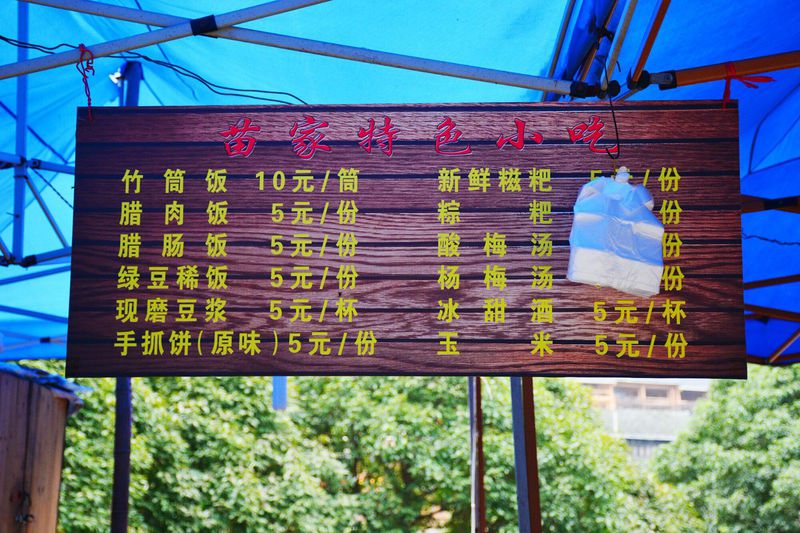 苗家特色小吃
竹筒饭 10元/筒
腊肉饭 5元/份
腊肠饭 5元/份
绿豆稀饭 5元/份
现磨豆浆 5元/杯
手抓饼(原味) 5元/份
新鲜糍粑 5元/份
粽粑 份
酸梅汤 份
杨梅汤 /杯
冰甜酒 5元/杯
玉米 5元/份